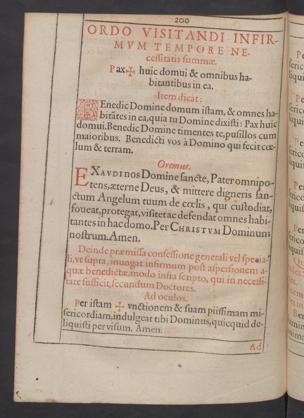 200
ORDO VISITANDI INFIR-
MVM TEMPORE NE-
cessitatis summæ.
Pax ✠ huic domui & omnibus ha-
bitantibus in ea.
Item dicat:
BEnedic Domine domum istam, & omnes ha-
bitātes in ea, quia tu Domine dixisti: Pax huic
domui. Benedic Domine timentes te, pusillos cum
maioribus. Benedicti vos à Domino qui fecit cœ-
lum & terram.
Oremus.
EXAVDI NOS Domine sancte, Pater omnipo-
tens, æterne Deus, & mittere digneris san-
ctum Angelum tuum de cœlis, qui custodiat,
foueat, protegat, visitet ac defendat omnes habi-
tantes in hac domo. Per CHRISTVM Dominum
nostrum. Amen.
Deinde præmissa confessione generali vel specia-
li, vt supra, inungat infirmum post aspersionem a-
quæ benedictæ, modo infra scripto, qui in necessi-
tate sufficit, secundum Doctores.
Ad oculos.
Per istam ✠ vnctionem & suam piissimam mi-
sericordiam, indulgeat tibi Dominus, quicquid de-
liquisti per visum. Amen.
Ad